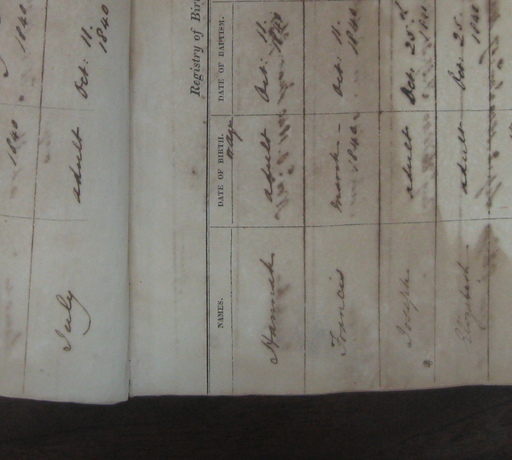 1840 1840
July adult Oct: 11.
1840
Registry of Bir
NAMES. DATE OF BIRTH. DATE OF BAPTISM.
or age
Hannah adult Oct: 11.
1840
Francis March Oct: 11.
1840 1840
Joseph adult Oct: 25th
Elizabeth adult Oct: 25
1840